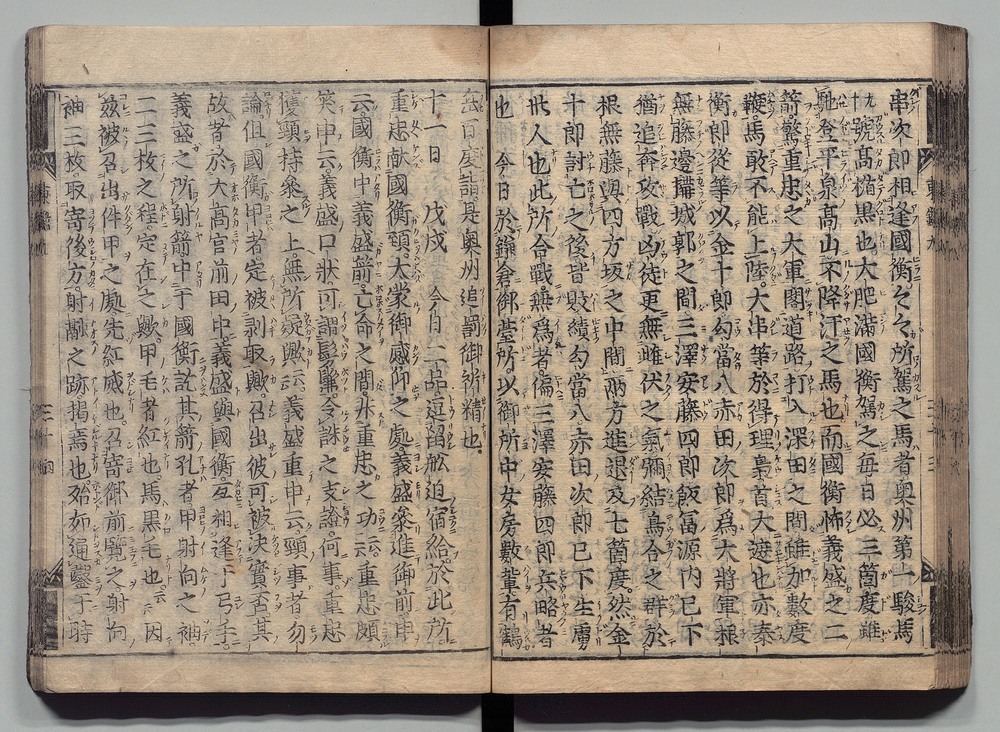 串次郎相逢國衡々々所駕之馬者奥州第一駿馬
號髙楯黒也大肥滿國衡駕之每日必三箇度雖
馳登平泉髙山不降汗之馬也而國衡怖義盛之二
箭驚重忠之大軍閣道路打入深田之間雖加數度
鞭馬敢不能上陸大串等於得理梟首太速也亦泰
衡郎從等以金十郎勾當八赤田次郎爲大將軍根
無藤邊搆城郭之間三澤安藤四郎飯冨源内已下
猶追奔攻戰凶徒更無雌伏之氣彌結烏合之群於
根無藤與四方坂之中間兩方進退及七箇度然金
十郎討亡之後皆敗績勾當八赤田次郎已下生虜
卅人也此所合戰無爲者偏三澤安藤四郎兵略者
也今日於鎌倉御臺所以御所中女房數輩有鶴
岳百度詣是奥州追罰御祈精也
十一日戊戌今日二品逗留舩迫宿給於此所
重忠献國衡頸太蒙御感仰之處義盛參進御前申
云國衡中義盛箭亡命之間非重忠之功云云重忠頗
咲申云義盛口狀可謂髣髴令誅之支證何事重忠
獲頸持參之上無所疑歟云云義盛重申云頸事者勿
論但國衡甲者定被剥取歟召出彼可被决實否其
故者於大高宮前田中義盛與國衡互相逢于弓手
義盛之所射箭中于國衡訖其箭孔者甲射向之袖
二三枚之程定在之歟甲毛者紅也馬黒毛也云云因
茲被召出件甲之處先紅威也召寄御前覽之射向
袖三枚取寄後方射融之跡掲焉也殆如通鑿于時
東鑑九
三十三
東鑑九
三十四